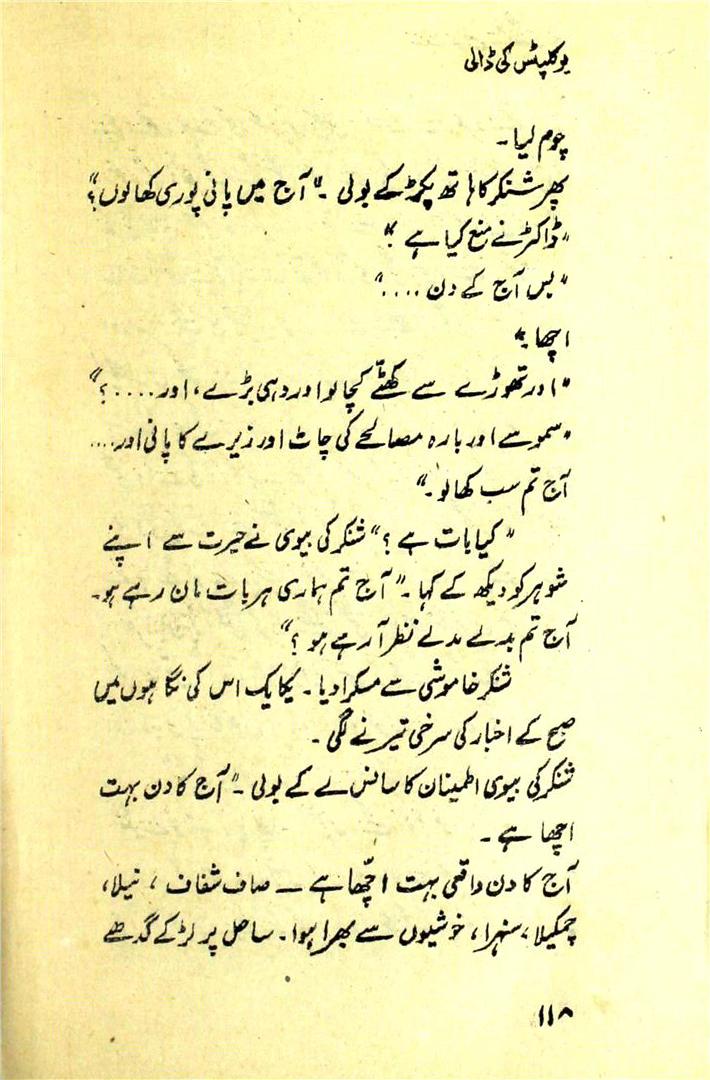 یوکلپٹس کی ڈالی
چوم لیا۔
پھر شنکر کا ہاتھ پکڑ کے بولی۔ "آج میں پانی پوری کھالوں؟"
"ڈاکٹر نے منع کیا ہے"
"بس آج کے دن ...."
اچھا۔"
"اور تھوڑے سے کھٹّے کچالو اور دہی بڑے، اور....؟"
"سموسے اور بارہ مصالحے کی چاٹ اور زیرے کا پانی اور....
آج تم سب کھالو۔"
"کیا بات ہے؟" شنکر کی بیوی نے حیرت سے اپنے
شوہر کو دیکھ کے کہا۔ "آج تم ہماری ہر بات مان رہے ہو۔
آج تم بدلے بدلے نظر آرہے ہو؟"
شنکر خاموشی سے مسکرادیا۔ یکایک اس کی نگاہوں میں
صبح کے اخبار کی سرخی تیرنے لگی۔
شنکر کی بیوی اطمینان کا سانس لے کے بولی۔ "آج کا دن بہت
اچھا ہے۔
آج کا دن واقعی بہت اچّھا ہے — صاف شفاف، نیلا،
چمکیلا، سنہرا، خوشیوں سے بھرا ہوا۔ ساحل پر لڑکے گدھے
۱۱۸